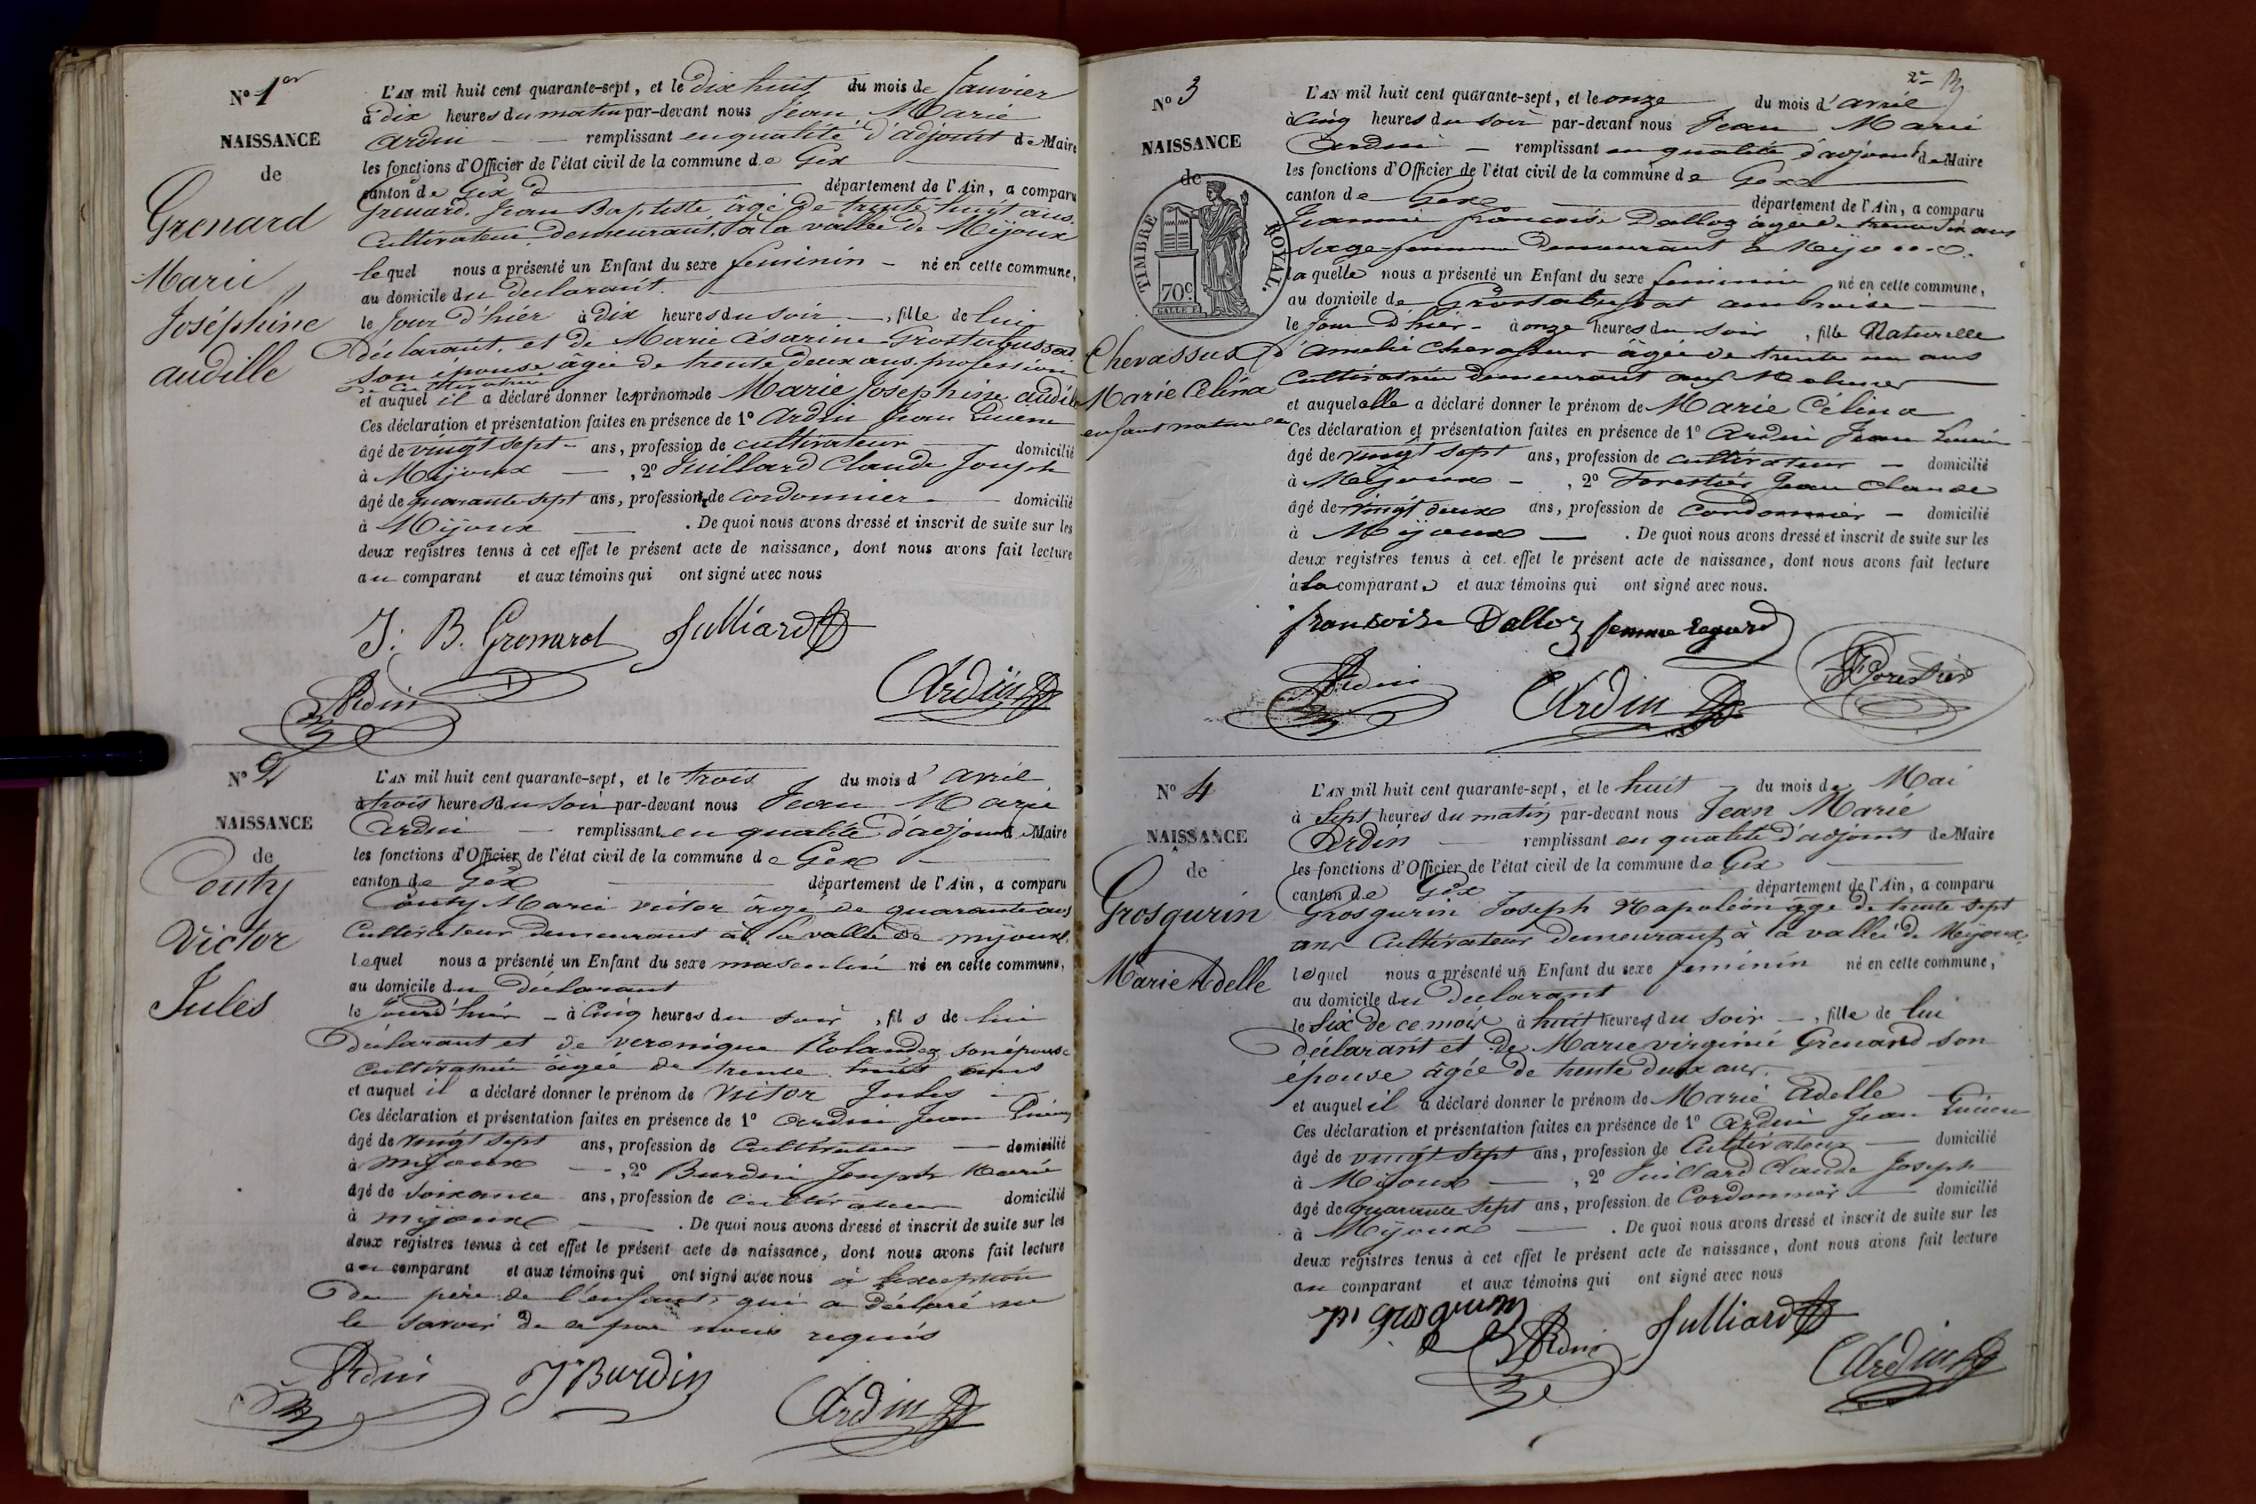 N° 1er
NAISSANCE
de
Grenard
Marie
Joséphine
audille
L'AN mil huit cent quarante-sept, et le dix huit du mois de Janvier
à dix heures du matin par-devant nous Jean Marie
Ardin remplissant en qualité d'adjoint de Maire
les fonctions d'Officier de l'état civil de la commune de Gex
canton de Gex département de l'Ain, a comparu
Grenard Jean Baptiste âgé de trente huit ans
Cultivateur demeurant à la vallée de Mijoux
lequel nous a présenté un Enfant du sexe feminin né en cette commune,
au domicile du declarant
le jour d'hier à dix heures du soir, fille de lui
déclarant et de Marie Césarine Grostabussat
son épouse âgée de trente deux ans profession
et auquel il a déclaré donner les prénoms de Marie Josephine audille
Ces déclaration et présentation faites en présence de 1° Ardin Jean Lucien
âgé de vingt sept ans, profession de cultivateur domicilié
à Mijoux, 2° Juillard Claude Joseph
âgé de quarante sept ans, profession de Cordonnier domicilié
à Mijoux. De quoi nous avons dressé et inscrit de suite sur les
deux registres tenus à cet effet le présent acte de naissance, dont nous avons fait lecture
au comparant et aux témoins qui ont signé avec nous
J. B. Grenard Julliard
Ardin Ardin
N° 2
NAISSANCE
de
Couty
Victor
Jules
L'AN mil huit cent quarante-sept, et le trois du mois d'avril
à trois heures du soir par-devant nous Jean Marie
Ardin remplissant en qualité d'adjoint de Maire
les fonctions d'Officier de l'état civil de la commune de Gex
canton de Gex département de l'Ain, a comparu
Couty Marie victor âgé de quarante ans
Cultivateur demeurant à la vallé de mijoux
lequel nous a présenté un Enfant du sexe masculin né en cette commune,
au domicile du déclarant
le jour d'hier à cinq heures du soir, fils de lui
déclarant et de veronique Rolandez son épouse
cultivatrice âgée de trente ans
et auquel il a déclaré donner le prénom de Victor Jules
Ces déclaration et présentation faites en présence de 1° Ardin Jean Lucien
âgé de vingt sept ans, profession de Cultivateur domicilié
à mijoux, 2° Burdin Joseph Marie
âgé de soixante ans, profession de cultivateur domicilié
à mijoux. De quoi nous avons dressé et inscrit de suite sur les
deux registres tenus à cet effet le présent acte de naissance, dont nous avons fait lecture
au comparant et aux témoins qui ont signé avec nous à l'exception
du père de l'enfant qui a déclaré ne
le savoir de ce par nous requis
Ardin J Burdin Ardin
2e
N° 3
NAISSANCE
de
TIMBRE ROYAL.
70c
Chevassus
Marie Célina
enfant naturelle
L'AN mil huit cent quarante-sept, et le onze du mois d'avril
à cinq heures du soir par-devant nous Jean Marie
Ardin remplissant en qualité d'adjoint de Maire
les fonctions d'Officier de l'état civil de la commune de Gex
canton de Gex département de l'Ain, a comparu
Jeanne françoise Dalloz âgée de trente six ans
Sage-femme Demeurant à Mijoux.
laquelle nous a présenté un Enfant du sexe feminin né en cette commune,
au domicile de Grostabussat ambroise
le Jour d'hier à onze heures du soir, fille Naturelle
d'Amelie Chevassus âgée de trente un ans
Cultivatrice demeurant aux Molunes
et auquel elle a déclaré donner le prénom de Marie Célina
Ces déclaration et présentation faites en présence de 1° Ardin Jean Lucien
âgé de vingt sept ans, profession de cultivateur domicilié
à Mijoux, 2° Forestier Jean Claude
âgé de vingt deux ans, profession de Cordonnier domicilié
à Mijoux. De quoi nous avons dressé et inscrit de suite sur les
deux registres tenus à cet effet le présent acte de naissance, dont nous avons fait lecture
à la comparante et aux témoins qui ont signé avec nous.
françoise Dalloz femme Regard
Ardin Ardin Forestier
N° 4
NAISSANCE
de
Grosgurin
Marie Adelle
L'AN mil huit cent quarante-sept, et le huit du mois de Mai
à Sept heures du matin par-devant nous Jean Marie
Ardin remplissant en qualité d'adjoint de Maire
les fonctions d'Officier de l'état civil de la commune de Gex
canton de Gex département de l'Ain, a comparu
Grosgurin Joseph Napoléon âgé de trente sept
ans Cultivateur demeurant à la vallée de Mijoux,
lequel nous a présenté un Enfant du sexe feminin né en cette commune,
au domicile du declarant
le Six de ce mois à huit heures du soir, fille de lui
déclarant et de Marie virginie Grenard son
épouse âgée de trente deux ans.
et auquel il a déclaré donner le prénom de Marie Adelle
Ces déclaration et présentation faites en présence de 1° Ardin Jean Lucien
âgé de vingt sept ans, profession de Cultivateur domicilié
à Mijoux, 2° Juillard Claude Joseph
âgé de quarante sept ans, profession de Cordonnier domicilié
à Mijoux. De quoi nous avons dressé et inscrit de suite sur les
deux registres tenus à cet effet le présent acte de naissance, dont nous avons fait lecture
au comparant et aux témoins qui ont signé avec nous
grosgurin Ardin Julliard
Ardin